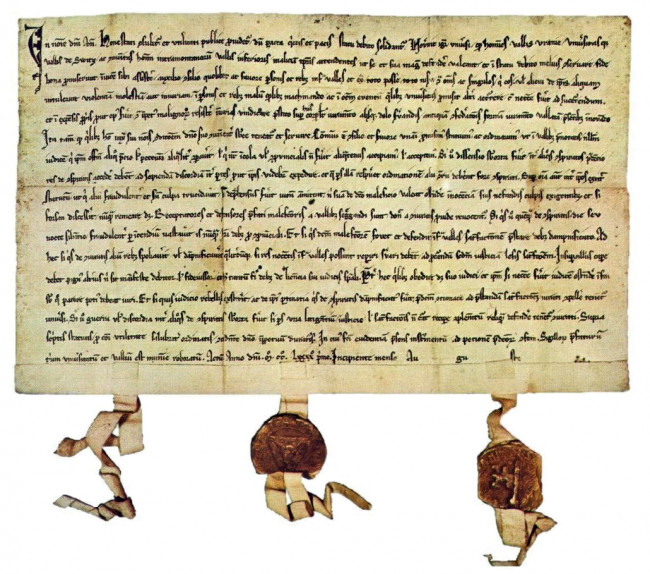 In noie dni Am. Honestati consulitur et utilitati publice providetur dum pacta quietis et pacis statu debito solidantur. Noverint igitur universi quod homines vallis Uranie universitasque
vallis de Switz ac communitas hominum intramontanorum vallis inferioris maliciam temporis attendentes ut se et sua magis defendere valeant et in statu debito melius conservare fide
bona promiserunt invicem sibi assistere auxilio consilio quolibet ac favore personis et rebus infra valles et extra toto posse toto nisu contra omnes ac singulos qui eis vel alicui de ipsis aliquam
intulerint violenciam molestiam aut iniuriam in personis et rebus malum quodlibet machinando ac in omnem eventum quelibet universitas promisit alteri accurrere cum necesse fuerit ad succurrendum
et in expensis propriis prout opus fuerit contra impetus malignorum resistere iniurias vindicare prestito super hiis corporaliter iuramento absque dolo servandis antiquam confederationis formam iuramento vallatam presentibus innovando
Ita tamen quod quilibet homo iuxta sui nominis conditionem domino suo convenienter subesse teneatur et servire. Communi etiam consilio et favore unanimi promisimus statuimus ac ordinavimus ut in vallibus prenotatis nullum
iudicem qui ipsum officium aliquo precio vel peccunia aliqualiter comparaverit vel qui noster incola vel conprovincialis non fuerit aliquatenus accipiamus vel acceptemus. Si vero dissensio suborta fuerit inter aliquos conspiratos prudencio
res de conspiratis accedere debent ad sopiendam discordiam inter partes prout ipsis videbitur expedire et que pars illam respueret ordinationem alii contrarii deberent fore conspirati. Super omnia autem inter ipsos extitit
statutum ut qui alium fraudulenter et sine culpa trucidaverit si deprehensus fuerit vitam ammittat nisi suam de dicto maleficio valeat ostendere innocenciam suis nefandis culpis exigentibus et si
forsan discesserit numquam remeare debet. Receptatores et defensores prefati malefactoris a vallibus segregandi sunt donec a coniuratis provide revocentur. Si quis vero quemquam de conspiratis die seu
nocte silentio fraudulenter per incendium vastaverit is numquam haberi debet pro conprovinciali. Et si quis dictum malefactorem fovet et defendit infra valles satisfactionem prestare debet dampnificato. Ad
hec si quis de coniuratis alium rebus spoliaverit vel dampnificaverit qualitercumque si res nocentis infra valles possunt reperiri servari debent ad procurandam secundum iusticiam lesis satisfactionem. Insuper nullus cape
debet pignus alterius nisi sit manifeste debitor vel fideiussor et hoc tantum fieri debet de licencia sui iudicis speciali. Preter hec quilibet obedire debet suo iudici et ipsum si necesse fuerit iudicem ostendere infra
sub quo parere potius debeat iuri. Et si quis iudicio rebellis exstiterit ac de ipsius pertinacia quis de conspiratis dampnificatus fuerit predictum contumacem ad prestandam satisfactionem iurati conpellere tenentur
universi. Si vero guerra vel discordia inter aliquos de conspiratis suborta fuerit si pars una litigantium iusticie vel satisfactionis non curat recipere complementum reliquam defendere tenentur coniurati. Supra
scriptis statutis pro communi utilitate salubriter ordinatis concedente domino inperpetuum duraturis. In cuius facti evidentiam presens instrumentum ad peticionem predictorum confectum Sigillorum prefatarum
trium universitatum et vallium est munimine roboratum. Actum Anno dni. M. CC. LXXXX. primo. Incipiente mense Au gu sto